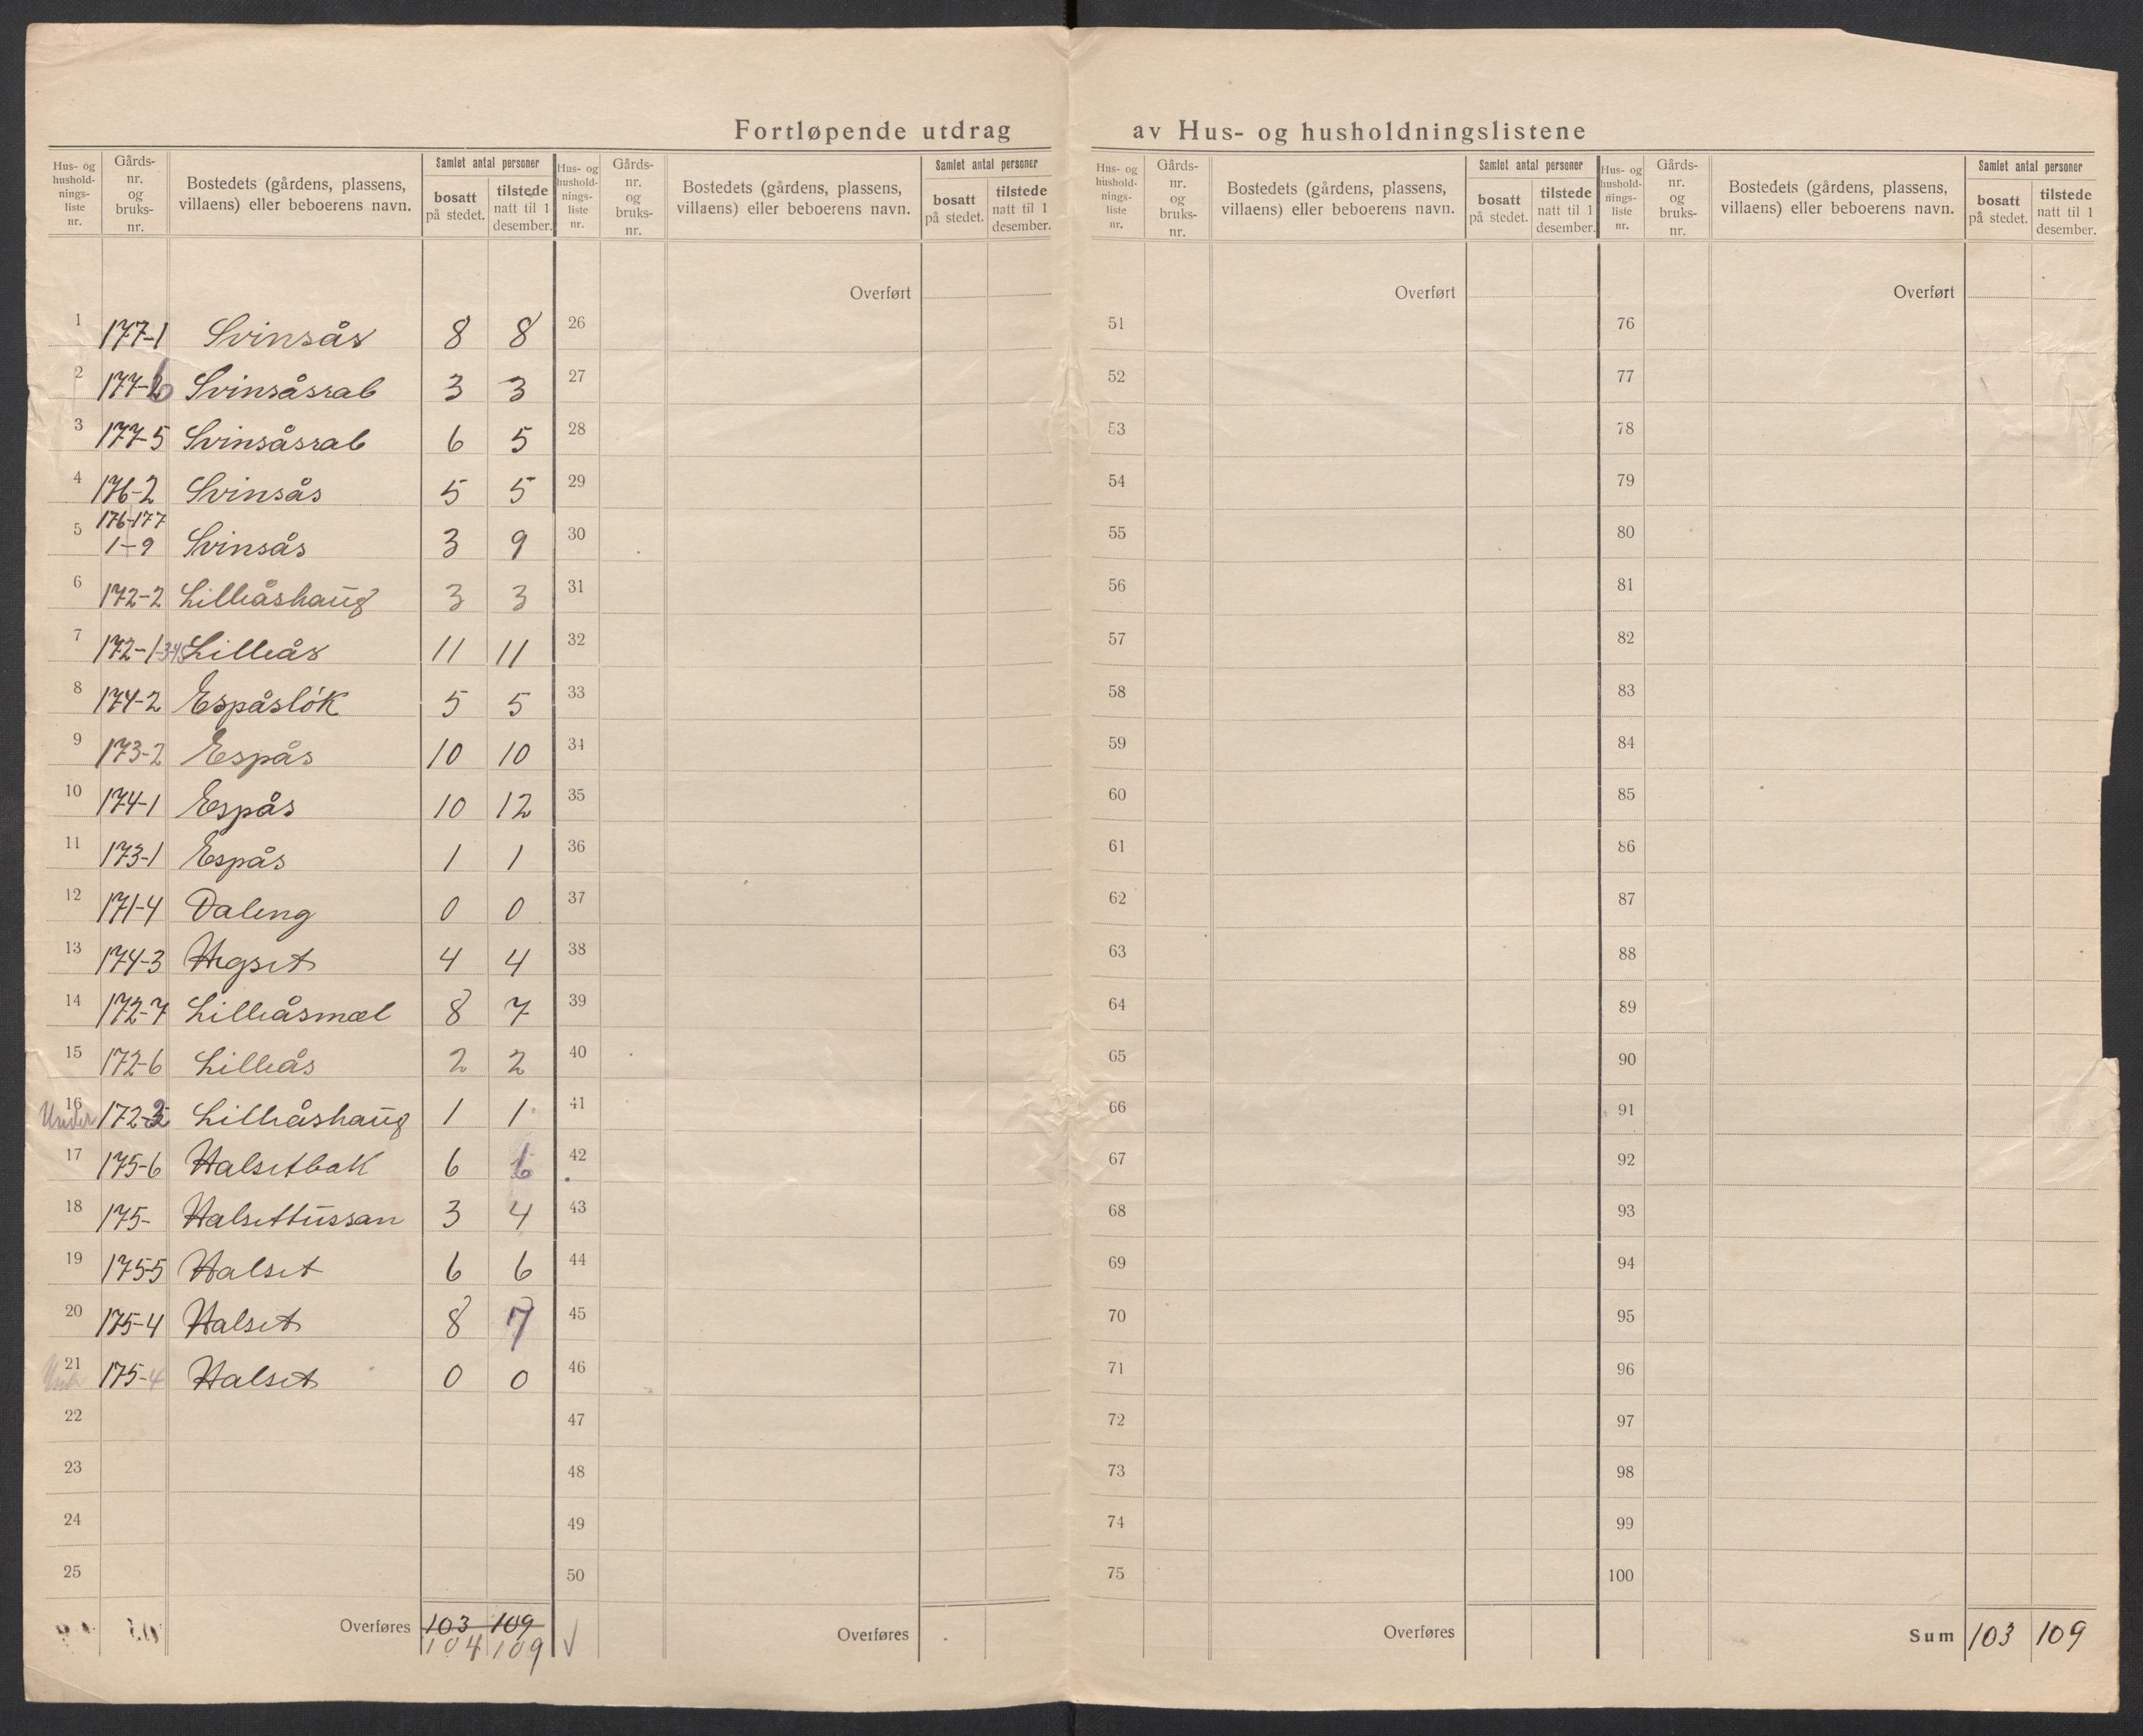 Fortløpende utdrag av Hus- og husholdningslistene
Hus- og hushold-nings-liste nr. Gårds-nr. og bruks-nr. Bostedets (gårdens, plassens, villaens) eller beboerens navn. Samlet antal personer bosatt på stedet. tilstede natt til 1 desember.
Hus- og hushold-nings-liste nr. Gårds-nr. og bruks-nr. Bostedets (gårdens, plassens, villaens) eller beboerens navn. Samlet antal personer bosatt på stedet. tilstede natt til 1 desember.
Hus- og hushold-nings-liste nr. Gårds-nr. og bruks-nr. Bostedets (gårdens, plassens, villaens) eller beboerens navn. Samlet antal personer bosatt på stedet. tilstede natt til 1 desember.
Hus- og hushold-nings-liste nr. Gårds-nr. og bruks-nr. Bostedets (gårdens, plassens, villaens) eller beboerens navn. Samlet antal personer bosatt på stedet. tilstede natt til 1 desember.
Overført Overført Overført
1 177-1 Svinsås 8 8 26 51 76
2 177-6 Svinsåsrab 3 3 27 52 77
3 177-5 Svinsåsrab 6 5 28 53 78
4 176-2 Svinsås 5 5 29 54 79
176-177
5 1-9 Svinsås 3 9 30 55 80
6 172-2 Lilleåshaug 3 3 31 56 81
7 172-1-345 Lilleås 11 11 32 57 82
8 174-2 Espåslök 5 5 33 58 83
9 173-2 Espås 10 10 34 59 84
10 174-1 Espås 10 12 35 60 85
11 173-1 Espås 1 1 36 61 86
12 171-4 Daleng 0 0 37 62 87
13 174-3 Hegset 4 4 38 63 88
14 172-7 Lilleåsmæl 8 7 39 64 89
15 172-6 Lilleås 2 2 40 65 90
16 Under 172-2 Lilleåshaug 1 1 41 66 91
17 175-6 Halsetbak 6 6 42 67 92
18 175- Halsettussan 3 4 43 68 93
19 175-5 Halset 6 6 44 69 94
20 175-4 Halset 8 7 45 70 95
21 175-4 Halset 0 0 46 71 96
22 47 72 97
23 48 73 98
24 49 74 99
25 50 75 100
Overføres 103 109 Overføres Overføres Sum 103 109
104 109